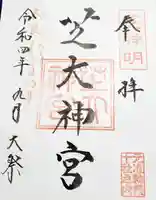 奉拝
芝大神宮
令和四年九月大祭